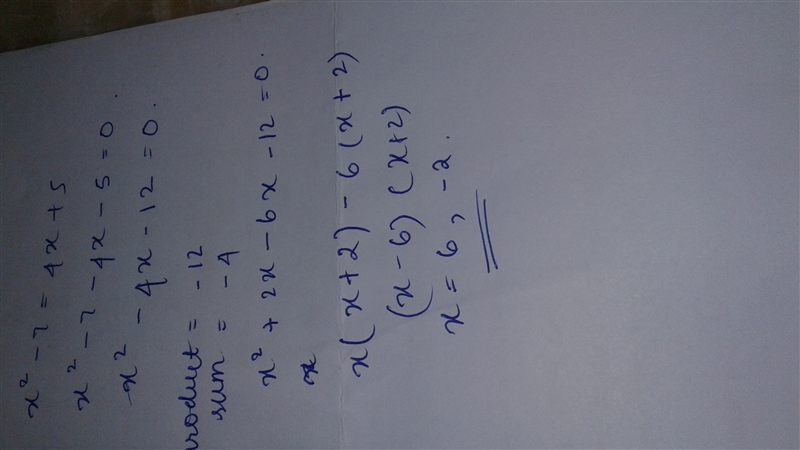 x² - 7 = 4x + 5
x² - 7 - 4x - 5 = 0.
x² - 4x - 12 = 0.
roduct = -12
sum = -4
x² + 2x - 6x - 12 = 0.
x(x+2) - 6(x+2)
(x-6)(x+2)
x = 6, -2.